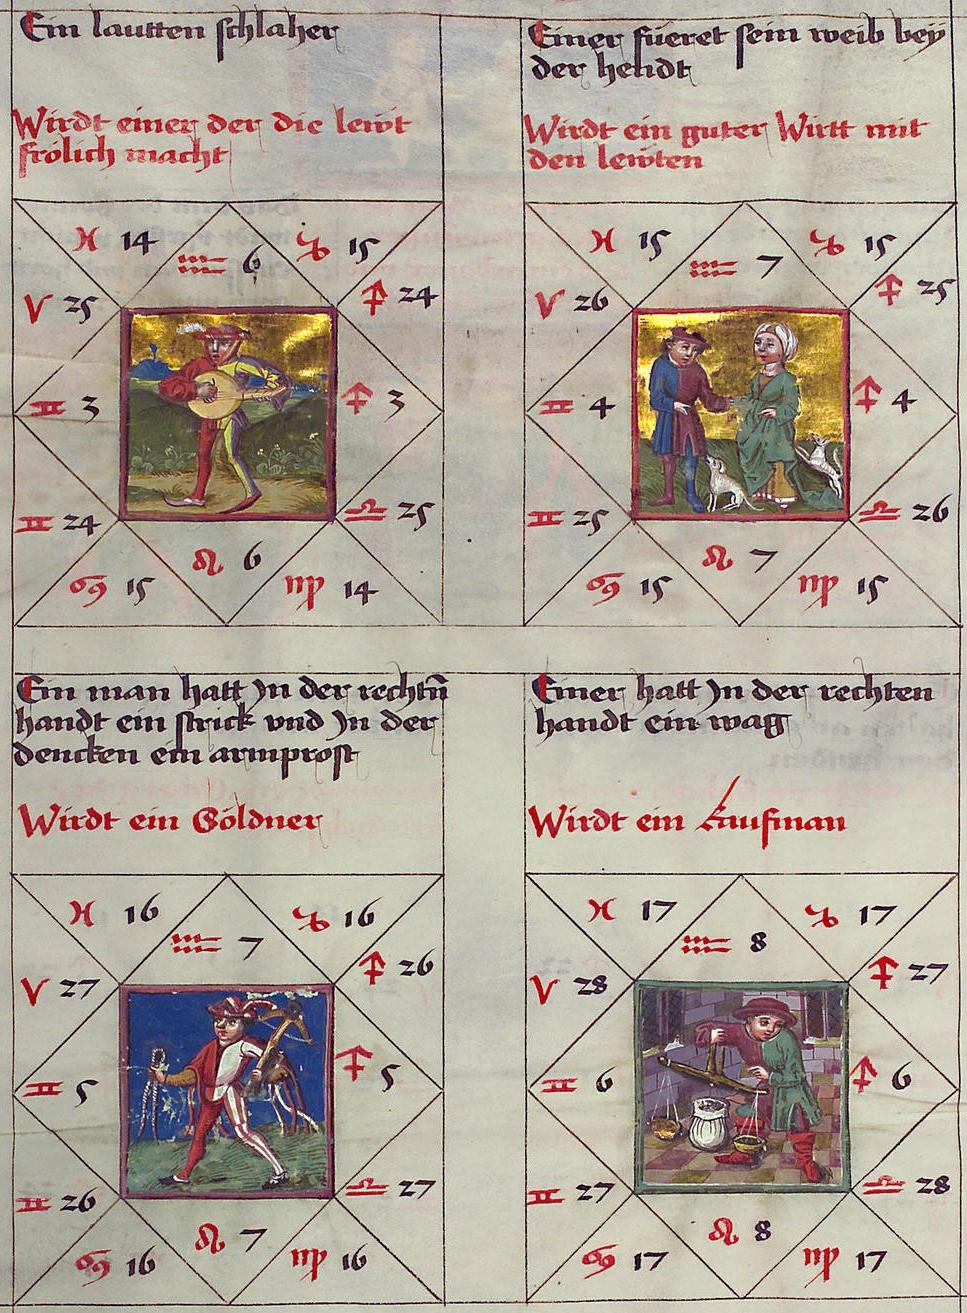 Ein lautten schlaher
Wirdt einer der die lewt
frölich macht
♓ 14
♒ 6
♑ 15
♈ 25
♐ 24
♊ 3
♐ 3
♊ 24
♎ 25
♋ 15
♌ 6
♍ 14
Einer fueret sein weib bey
der hendt
Wirdt ein guter Wirtt mit
den lewten
♓ 15
♒ 7
♑ 15
♈ 26
♐ 25
♊ 4
♐ 4
♊ 25
♎ 26
♋ 15
♌ 7
♍ 15
Ein man hatt Jn der rechtn̄
handt ein strick vnd Jn der
dencken ein armprost
Wirdt ein Söldner
♓ 16
♒ 7
♑ 16
♈ 27
♐ 26
♊ 5
♐ 5
♊ 26
♎ 27
♋ 16
♌ 7
♍ 16
Einer hatt Jn der rechten
handt ein wag
Wirdt ein kaufman
♓ 17
♒ 8
♑ 17
♈ 28
♐ 27
♊ 6
♐ 6
♊ 27
♎ 28
♋ 17
♌ 8
♍ 17